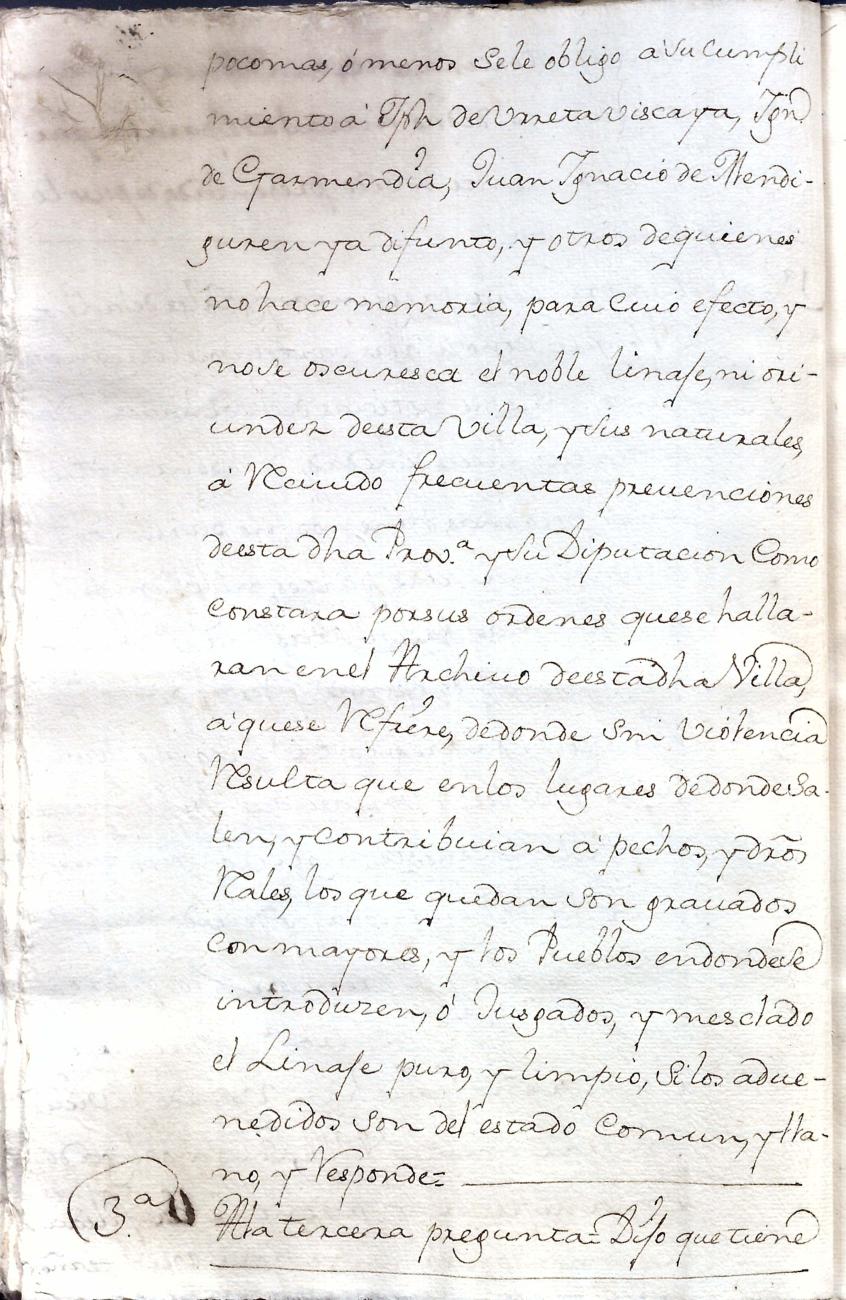 pocomas, ó menos sele obligo a su cumpli
miento a Jph de Urreta viscaya, Ign.º
de Garmendia, Juan Ignacio de Mendi-
guren ya difunto, y otros dequienes
no hace memoria, para cuio efecto, y
nose oscuresca el noble linase, ni ori-
undez deesta Villa, y sus naturales,
á Recivido frecuentes prevenciones
deesta dha Prov.ª y su Diputacion Como
constara porsus ordenes quese halla-
ran enel Archivo deesta dha Villa,
a quese Refiere, dedonde sin violencia
Resulta que enlos lugares dedonde sa-
len, y contribuian a pechos, y drõs
Rales, los que quedan son gravados
con mayores, y los Pueblos endonde se
introduzen, ó Jusgados, y mesclado
el Linase puro, y limpio, si los adve-
nedidos son del estado Comun, y lla-
no, y Responde=
3.ª
Ala tercera pregunta= Dijo que tiene